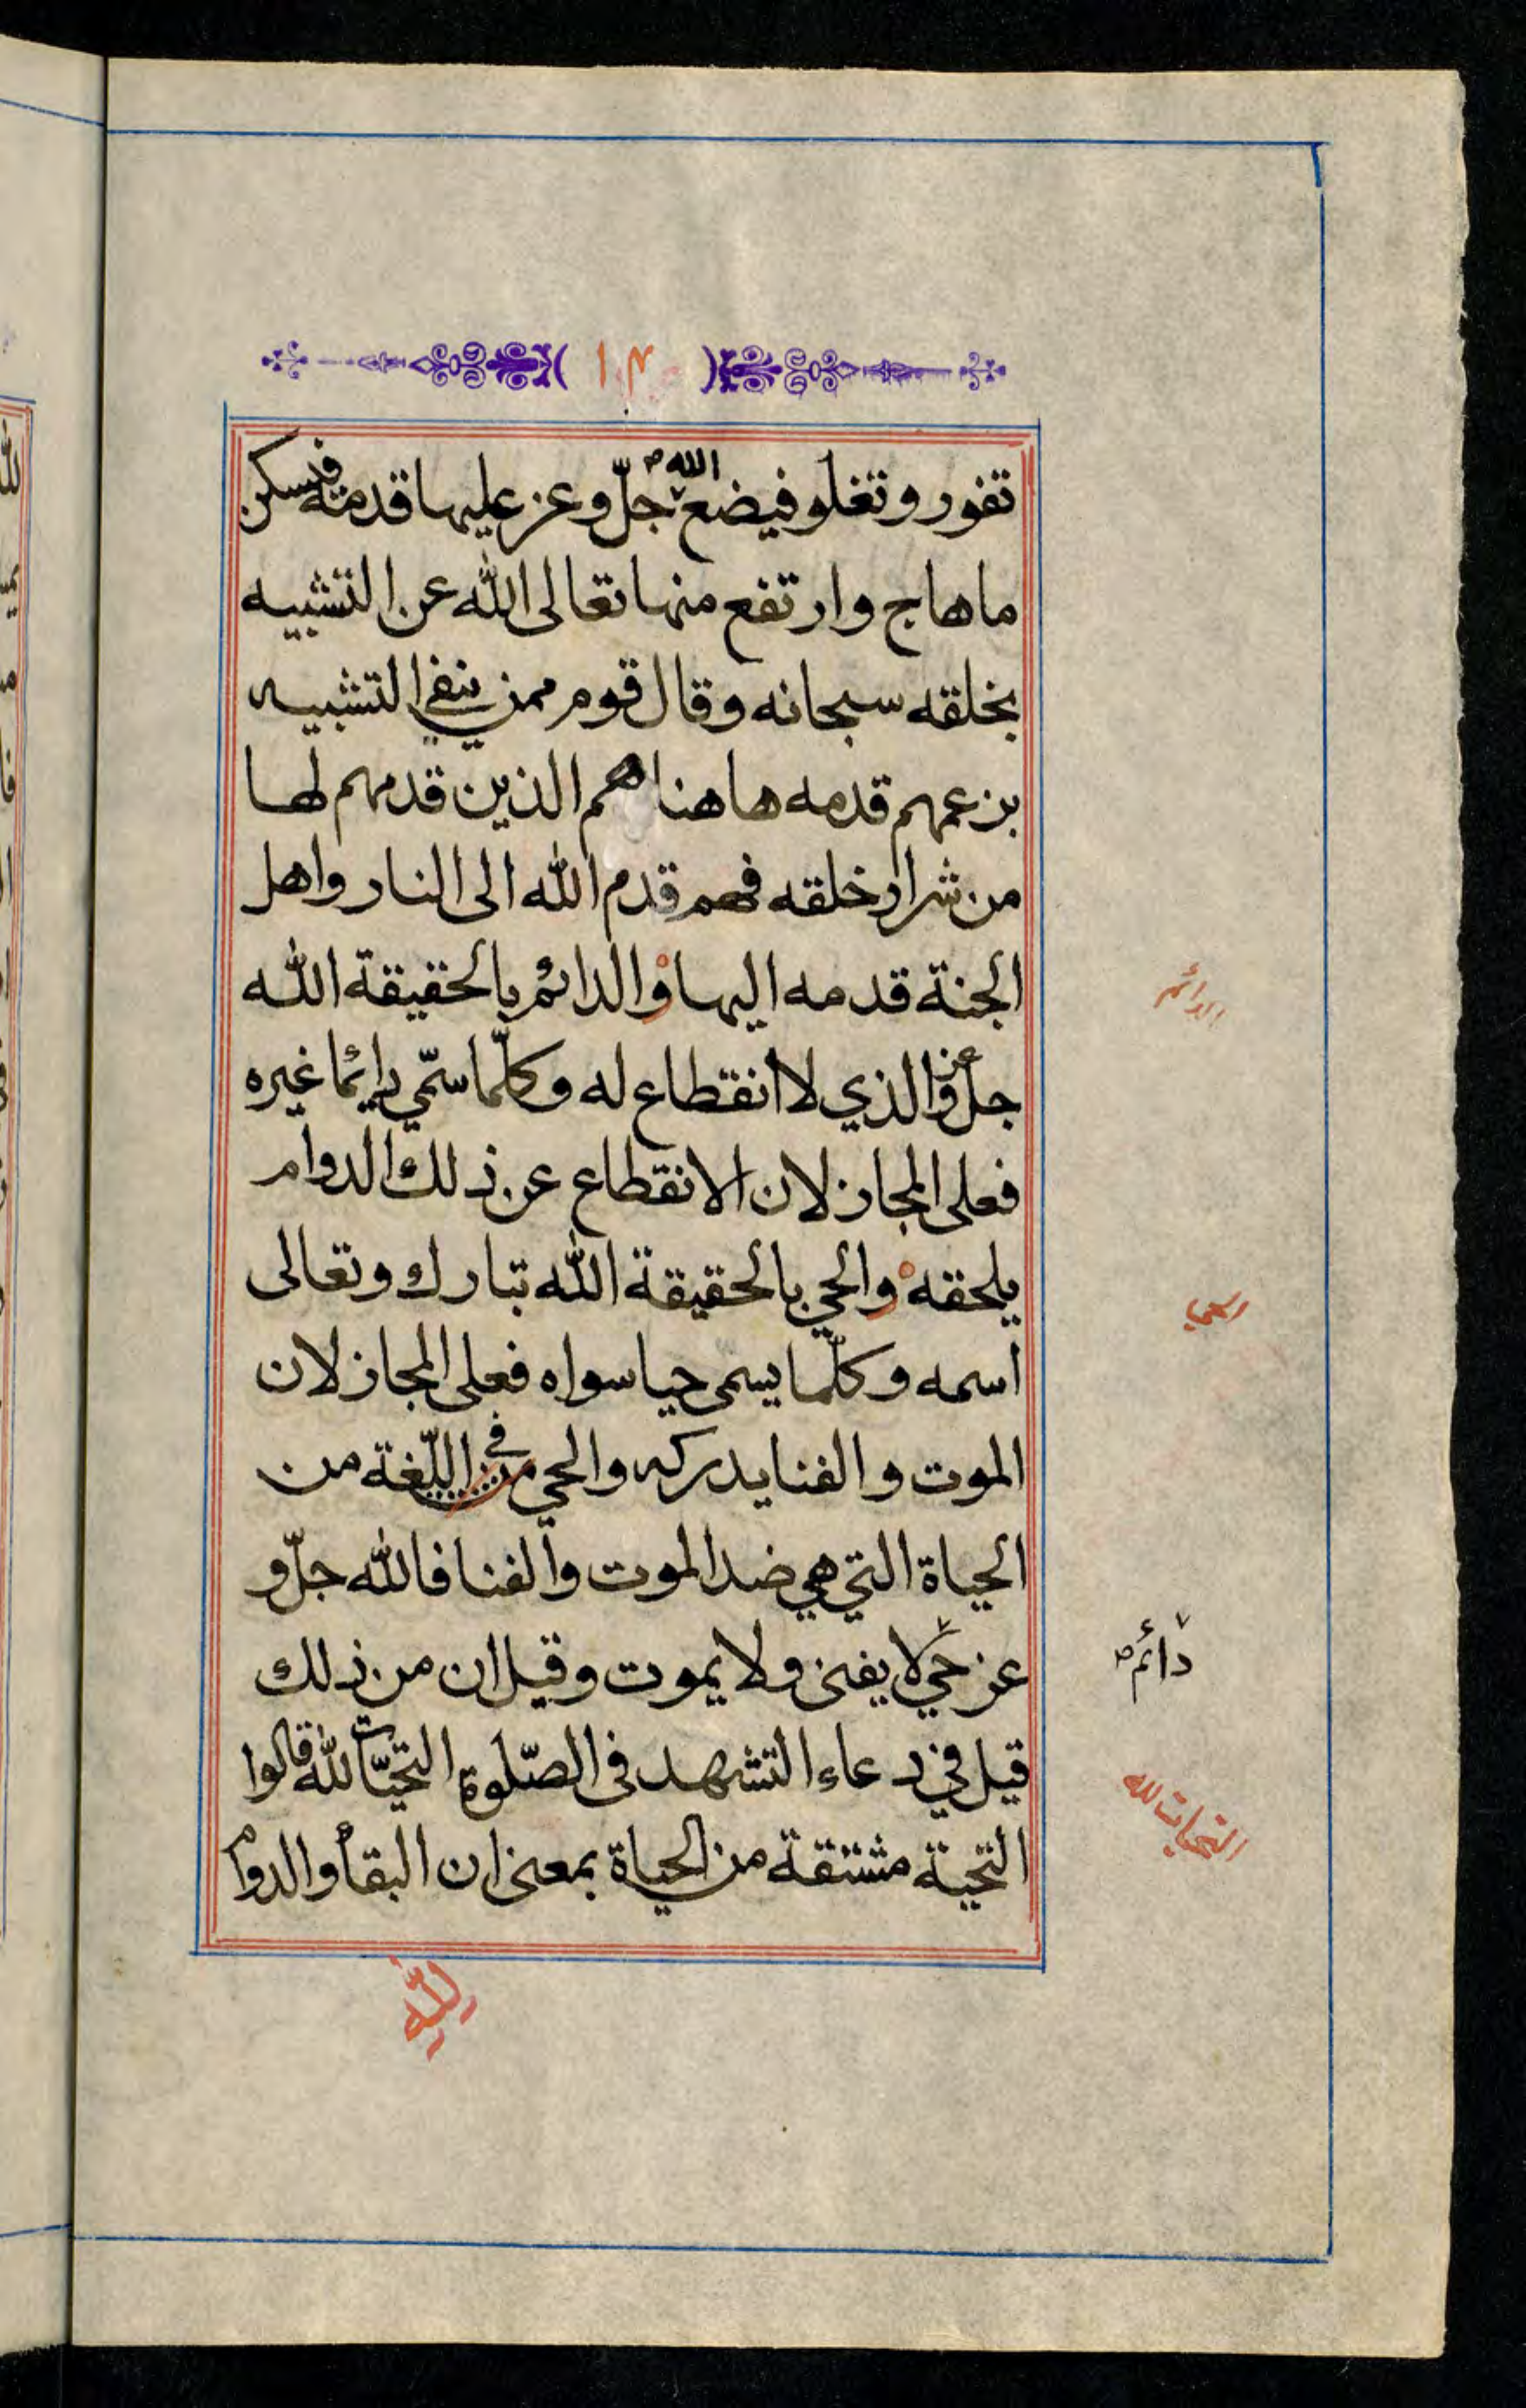 ١٠٣
تفور وتغلو فيضع الله جلّ وعز عليها قدمه فيسكن
ما هاج وارتفع منها تعالى الله عن التشبيه
بخلقه سبحانه وقال قوم ممن ينفي التشبيه
بزعمهم قدمه هاهنا هم الذين قدمهم لها
من شرار خلقه فهم قدم الله الى النار واهل
الجنة قدمه اليها والدائم بالحقيقة الله
الدائم
جلّ وعز الذي لا انقطاع له وكلّما سمّي دايمًا غيره
فعلى المجاز لان الانقطاع عن ذلك الدوام
يلحقه والحي بالحقيقة الله تبارك وتعالى
الحي
اسمه وكلّما يسمى حيا سواه فعلى المجاز لان
الموت والفنا يدركه والحي من في اللّغة من
الحياة التي هي ضد الموت والفنا فالله جلّ و
عز حي لا يفنى ولا يموت وقيل ان من ذلك
دائم
قيل في دعاء التشهد في الصّلوة التحيّات لله قالوا
التحيات لله
التحية مشتقة من الحياة بمعنى ان البقاء والدوام
لله